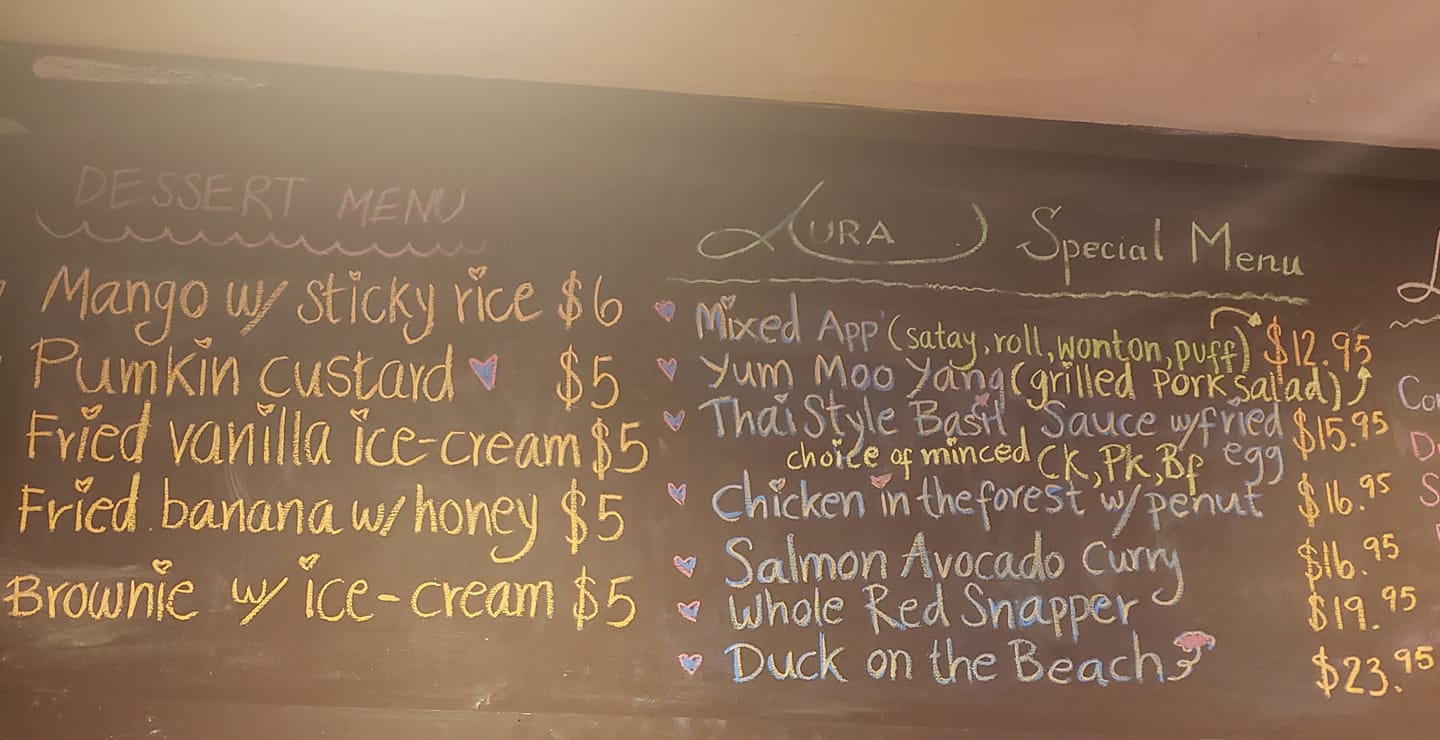 DESSERT MENU
Mango w/ sticky rice $6
Pumkin custard $5
Fried vanilla ice-cream $5
Fried banana w/ honey $5
Brownie w/ ice-cream $5
LURA Special Menu
Mixed App' (satay, roll, wonton, puff) $12.95
Yum Moo Yang (grilled Pork salad)
Thai Style Basil Sauce w/fried $15.95
choice of minced CK, PK, Bf egg
Chicken in the forest w/ penut $16.95
Salmon Avocado Curry $16.95
Whole Red Snapper $19.95
Duck on the Beach $23.95